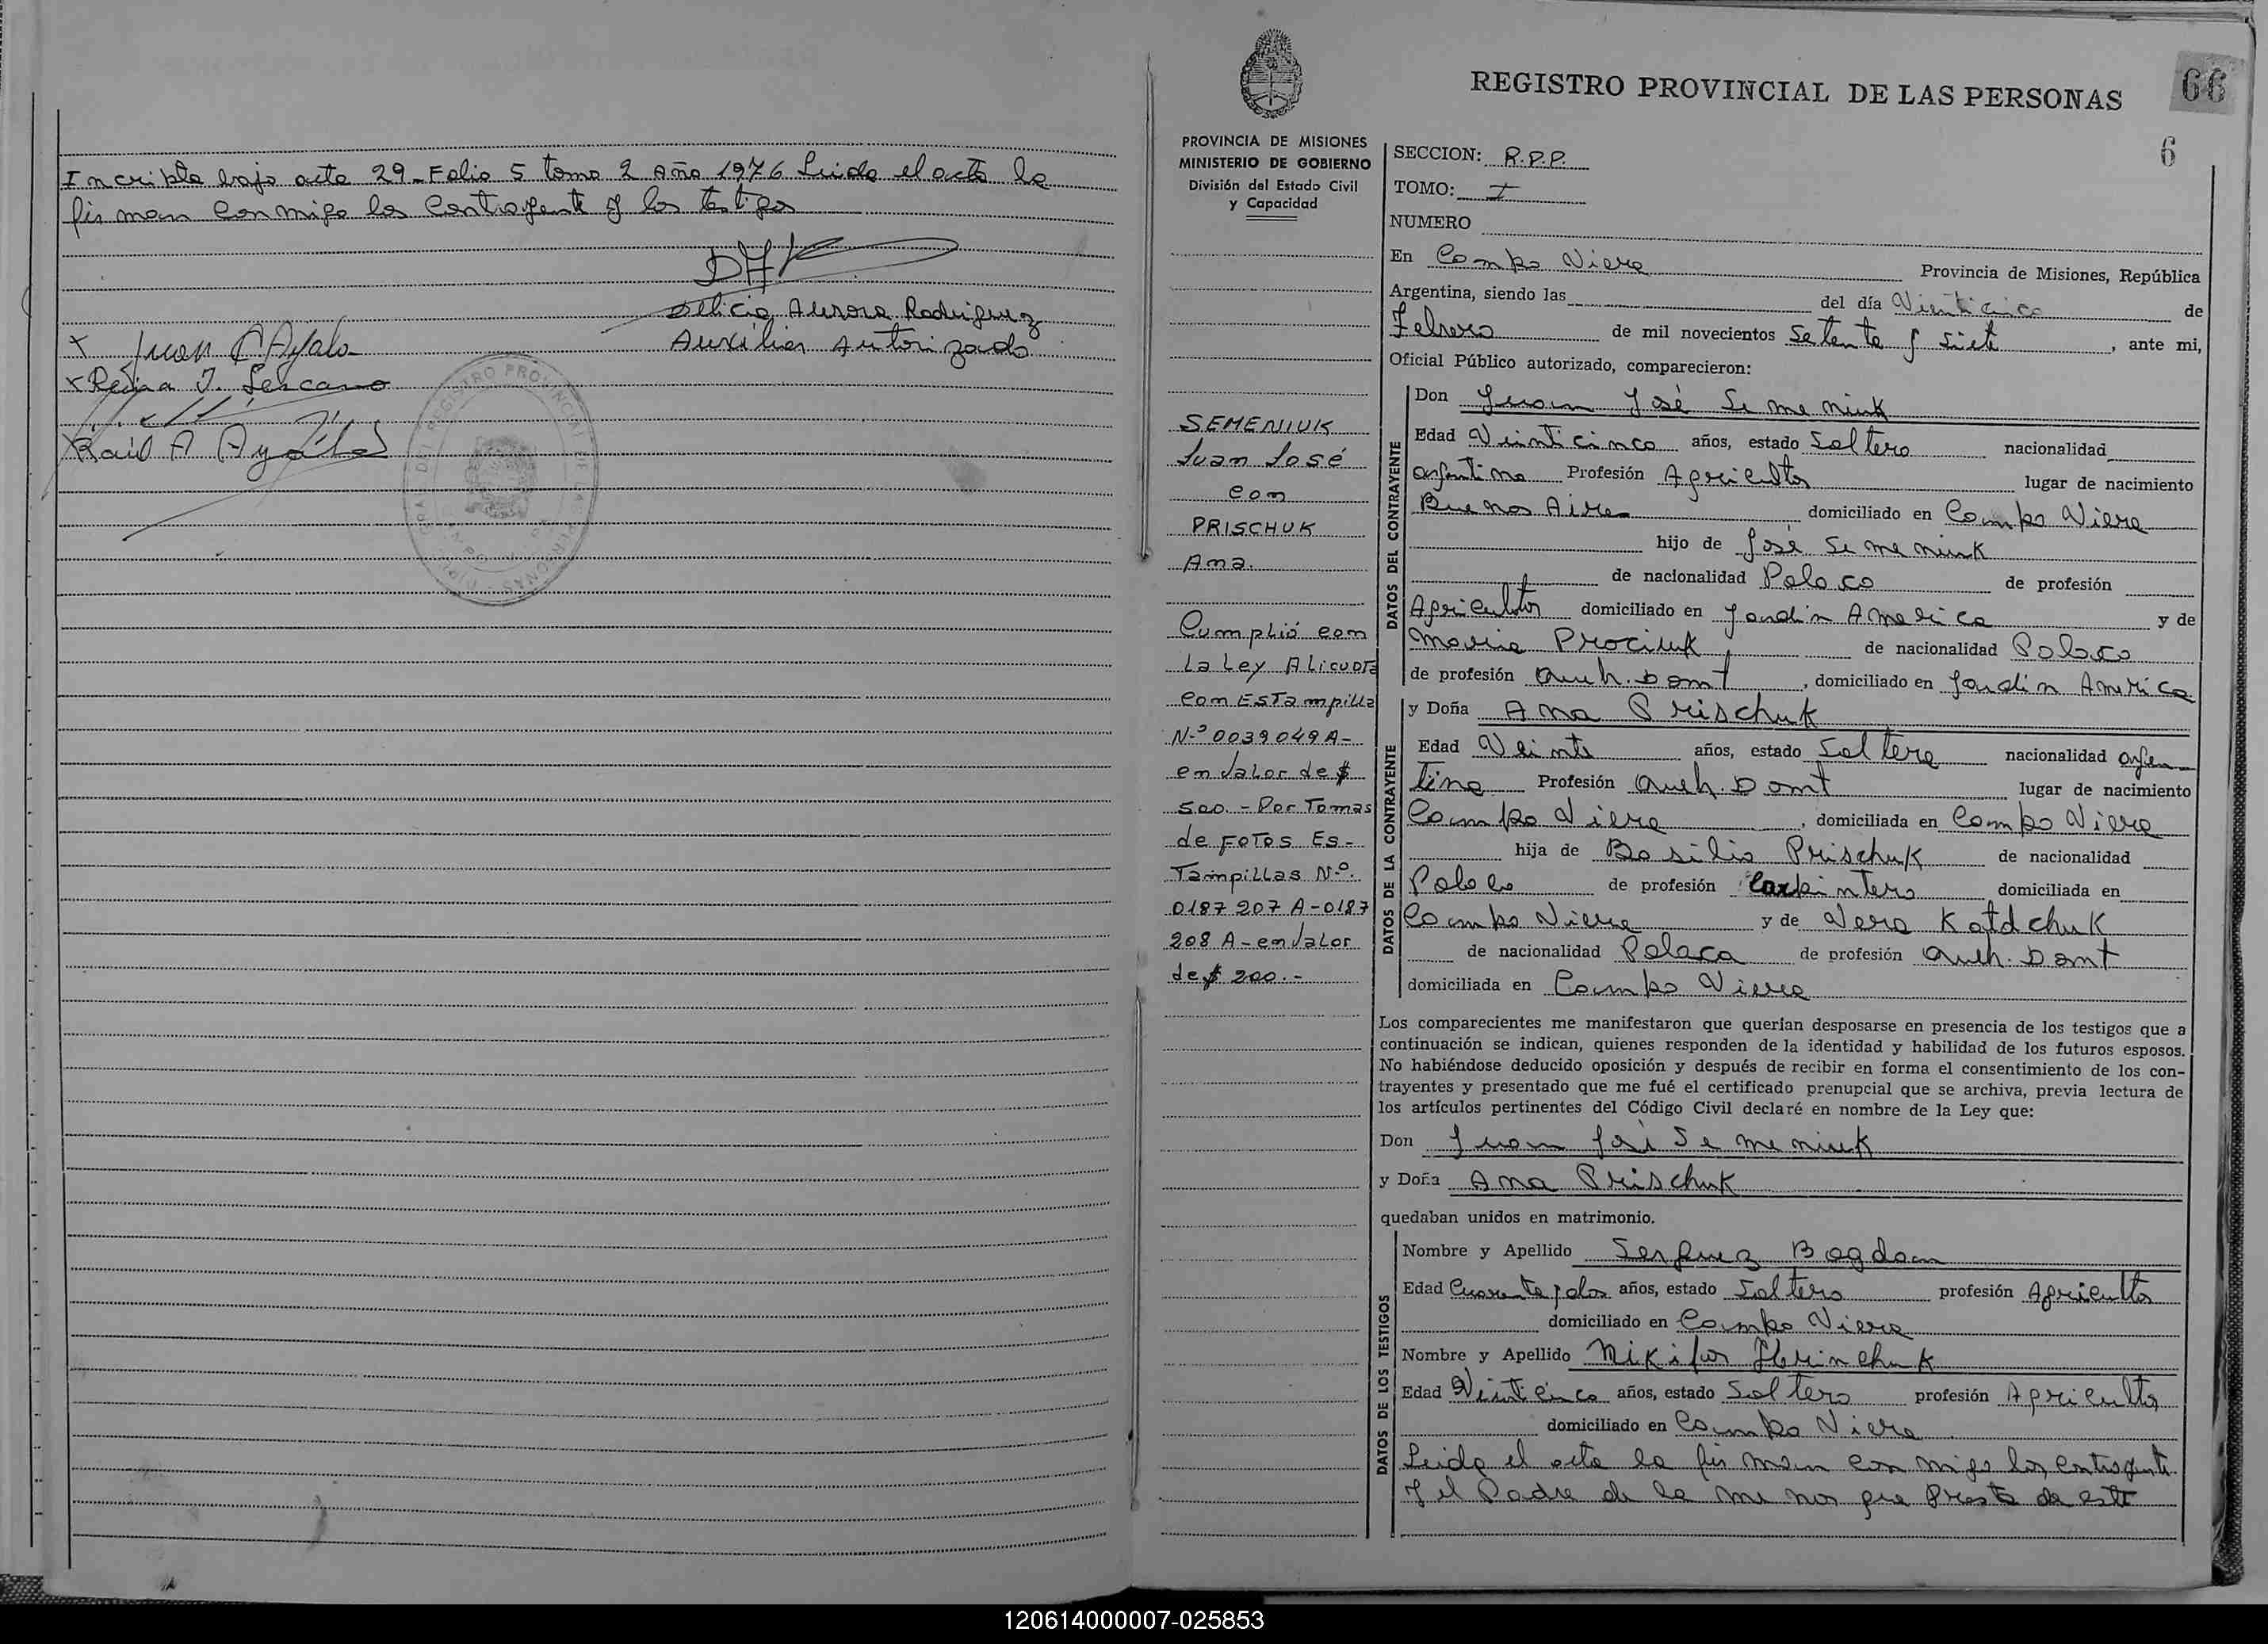 Incripta bajo acta 29 - Folio 5 tomo 2 Año 1976 Leida el acta la
firman conmigo los Contrayente y los testigos
Delicia Aurora Rodriguez
Auxiliar Autorizado
x Juan C Ayala
x Reina I. Lescano
x Raúl A Ayala
REGISTRO PROVINCIAL DE LAS PERSONAS
66
6
PROVINCIA DE MISIONES
MINISTERIO DE GOBIERNO
División del Estado Civil
y Capacidad
SEMENIUK
Juan José
con
PRISCHUK
Ana.
Cumplió con
La Ley Alicuota
con Estampilla
N.º 0039049 A-
en valor de $
500.- Por Tomas
de FOTOS ES-
Tampillas N.º
0187 207 A-0187
208 A - en valor
de $ 200.-
SECCION: R.P.P.
TOMO: I
NUMERO
En Campo Viera Provincia de Misiones, República
Argentina, siendo las del día Vienticinco de
Febrero de mil novecientos Setenta y Siete, ante mi,
Oficial Público autorizado, comparecieron:
DATOS DEL CONTRAYENTE
Don Juan José Semeniuk
Edad Veinticinco años, estado Soltero nacionalidad
argentina Profesión Agricultor lugar de nacimiento
Buenos Aires domiciliado en Campo Viera
hijo de José Semeniuk
de nacionalidad Polaco de profesión
Agricultor domiciliado en Jardin America y de
Maria Prociuk de nacionalidad Polaco
de profesión Queh. Domt, domiciliado en Jardin America
DATOS DE LA CONTRAYENTE
y Doña Ana Prischuk
Edad Veinte años, estado Soltera nacionalidad argen-
tina Profesión Queh. Domt lugar de nacimiento
Campo Viera, domiciliada en Campo Viera
hija de Basilio Prischuk de nacionalidad
Polaco de profesión Carpintero domiciliada en
Campo Viera y de Vera Katdchuk
de nacionalidad Polaca de profesión Queh. Domt
domiciliada en Campo Viera
Los comparecientes me manifestaron que querían desposarse en presencia de los testigos que a
continuación se indican, quienes responden de la identidad y habilidad de los futuros esposos.
No habiéndose deducido oposición y después de recibir en forma el consentimiento de los con-
trayentes y presentado que me fué el certificado prenupcial que se archiva, previa lectura de
los artículos pertinentes del Código Civil declaré en nombre de la Ley que:
Don Juan José Semeniuk
y Doña Ana Prischuk
quedaban unidos en matrimonio.
DATOS DE LOS TESTIGOS
Nombre y Apellido Serguez Bogdan
Edad Cuarenta y dos años, estado Soltero profesión Agricultor
domiciliado en Campo Viera
Nombre y Apellido Nikifor Hrinchuk
Edad Veinticinco años, estado Soltero profesión Agricultor
domiciliado en Campo Viera
Leida el acta la firman con migo los contrayente
y el Padre de la menor que Presta de este
120614000007-025853